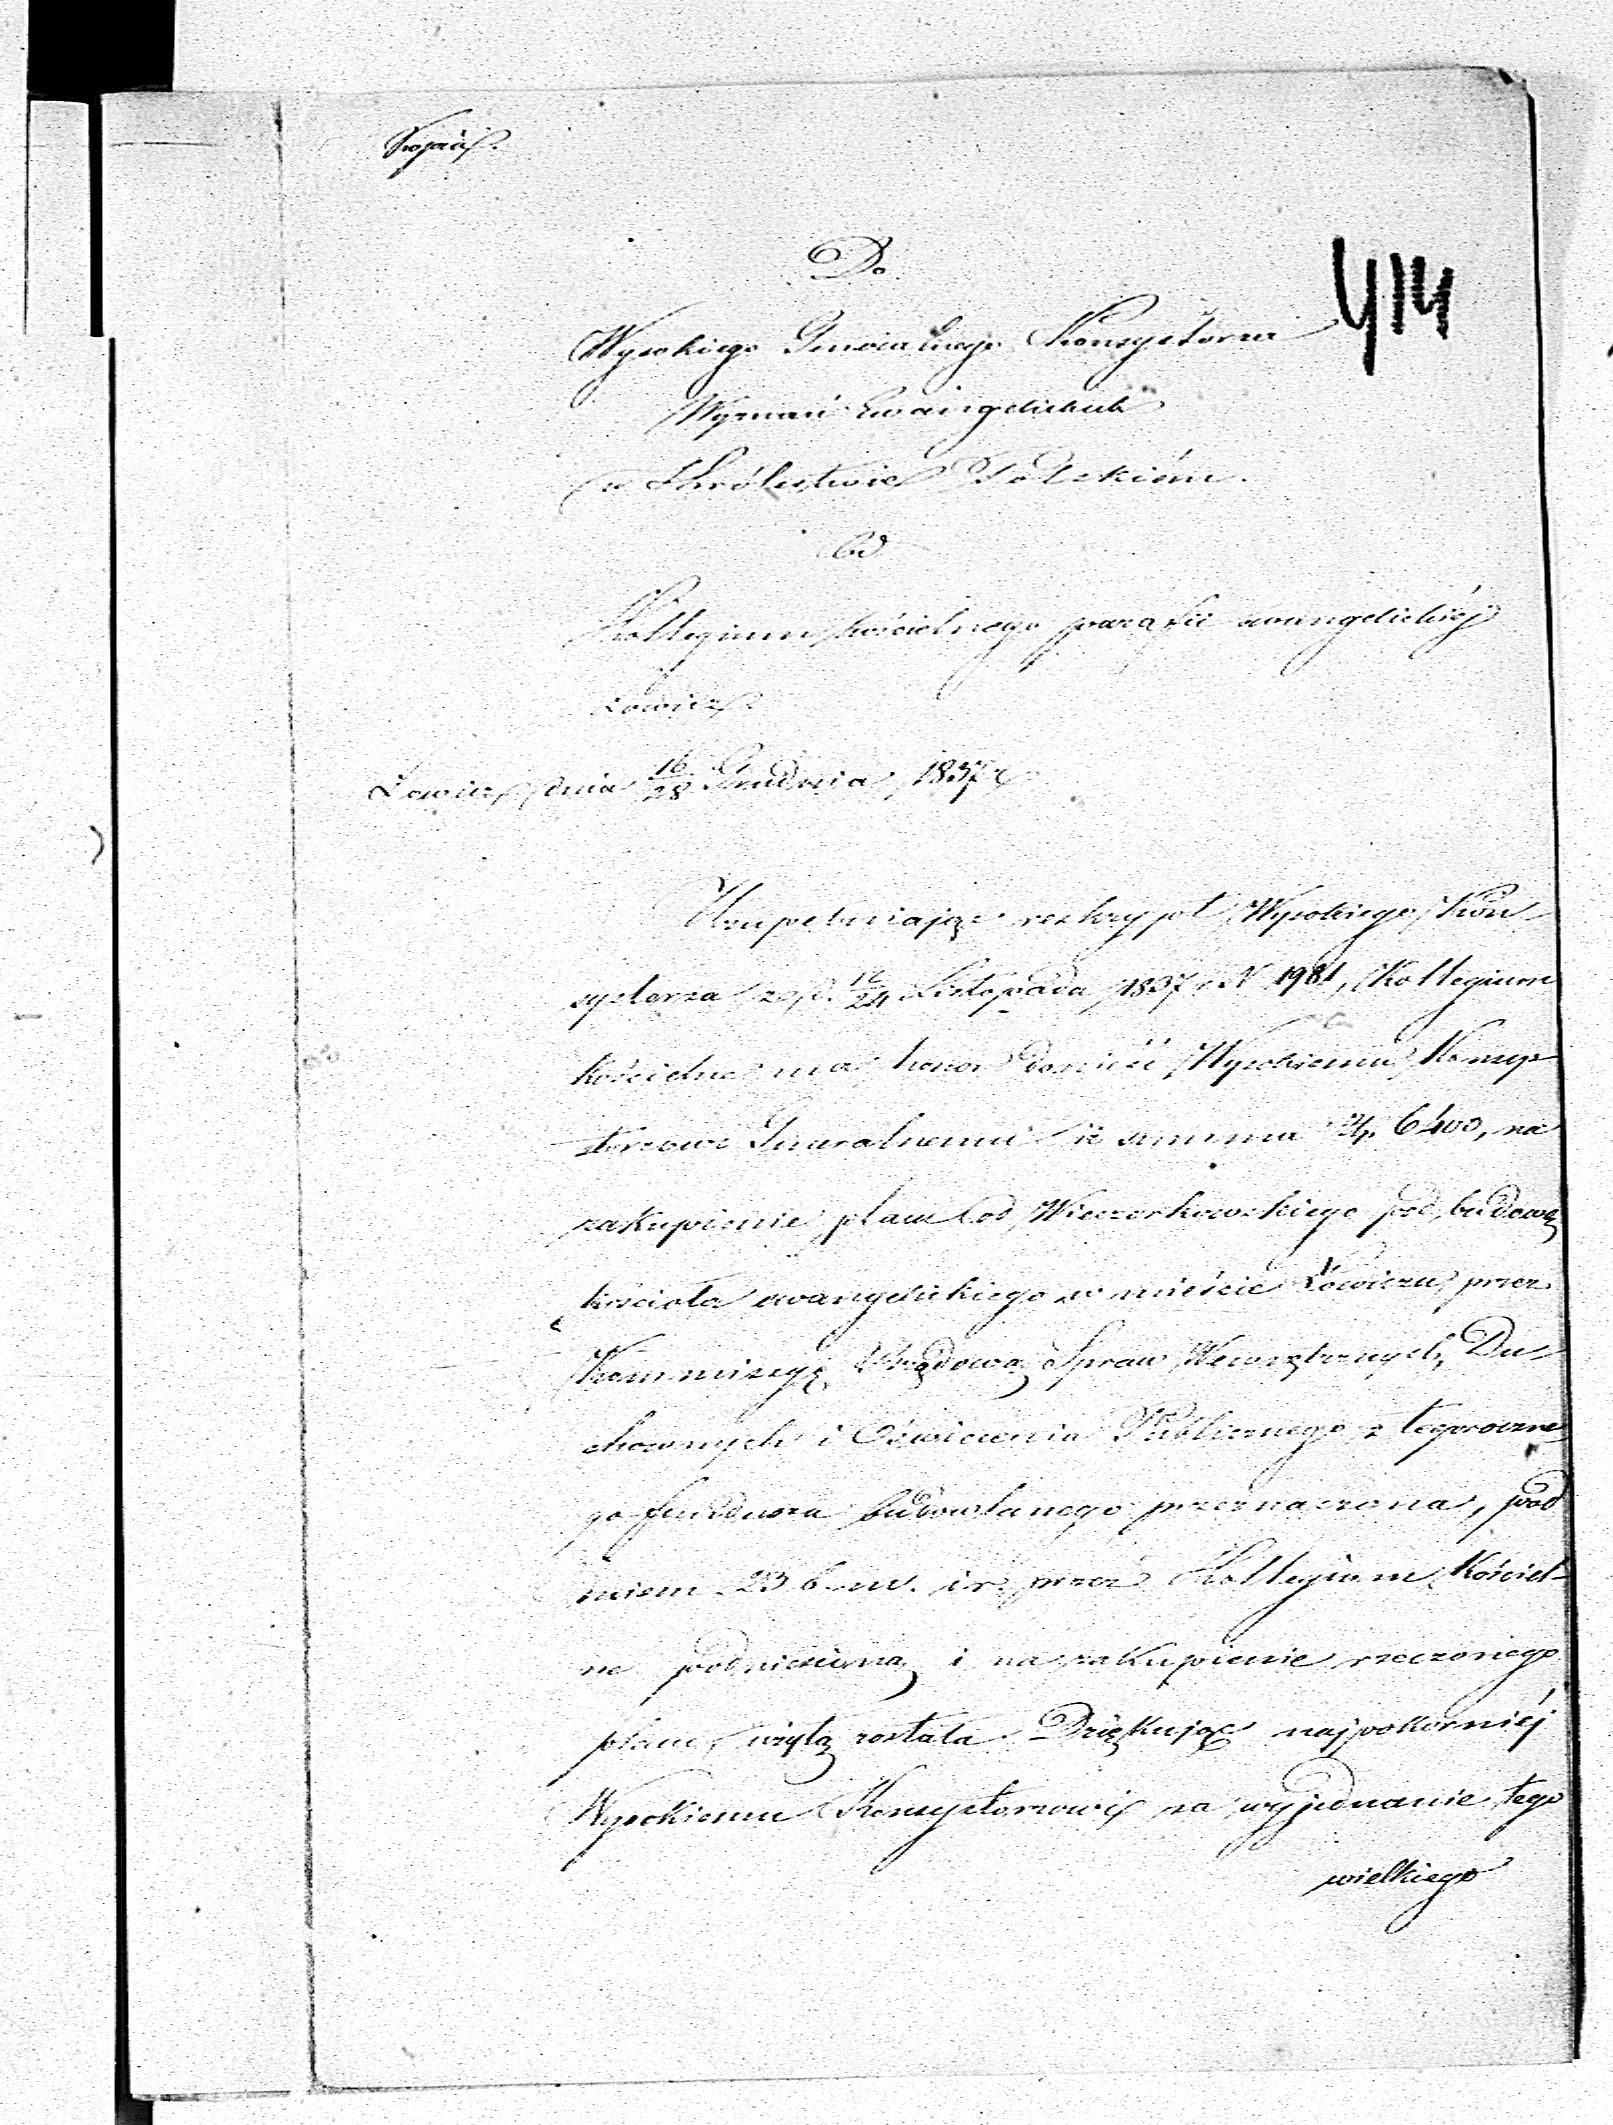 Kopia.
414
Do
Wysokiego Generalnego Konsystorza
Wyznań Ewangelickich
w Królestwie Polskiém.
Od
Kollegium kościelnego parafii ewangelickiéj
Łowicz.
Łowicz dnia 16/28 Grudnia 1837 r.
Uzupełniając reskrypt Wysokiego Kon-
systorza z d. 12/24 Listopada 1837 r. N 1981, Kollegium
kościelne ma honor donieść Wysokiemu Konsys-
storzowi Generalnemu iż summa Złp. 6400, na
zakupienie placu od Wieczorkowskiego pod budowę
kościoła ewangelickiego w mieście Łowiczu, przez
Kommissyę Rządową Spraw Wewnętrznych, Du-
chownych i Oświecenia Publicznego z tegoroczne
go funduszu budowlanego przeznaczona, pod
niem 23 b. m. i r. przez Kollegium Kościel-
ne podniesioną i na zakupienie rzeczonego
placu użytą została. Dziękując najpokorniéj
Wysokiemu Konsystorzowi za wyjednanie tego
wielkiego